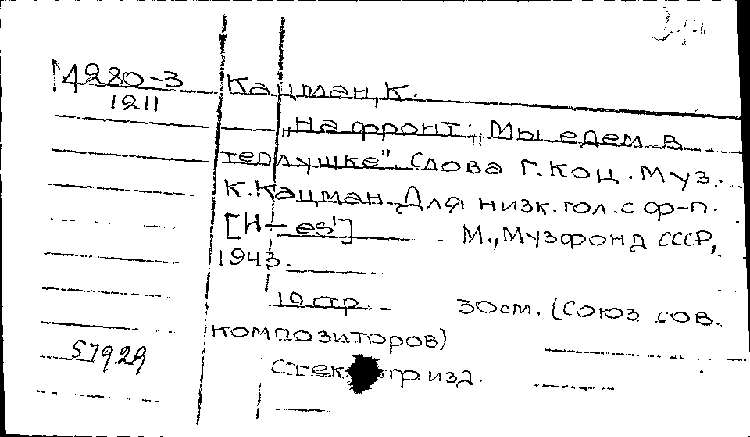 М280-3
1211
Кацман, К.
„На фронт. „Мы едем в
теплушке". Слова Г. Коц. Муз.
К. Кацман. Для низк. гол. с ф-п.
[H- es¹] М., Музфонд СССР,
1943.
10 стр. 30 см. (Союз сов.
композиторов)
57929